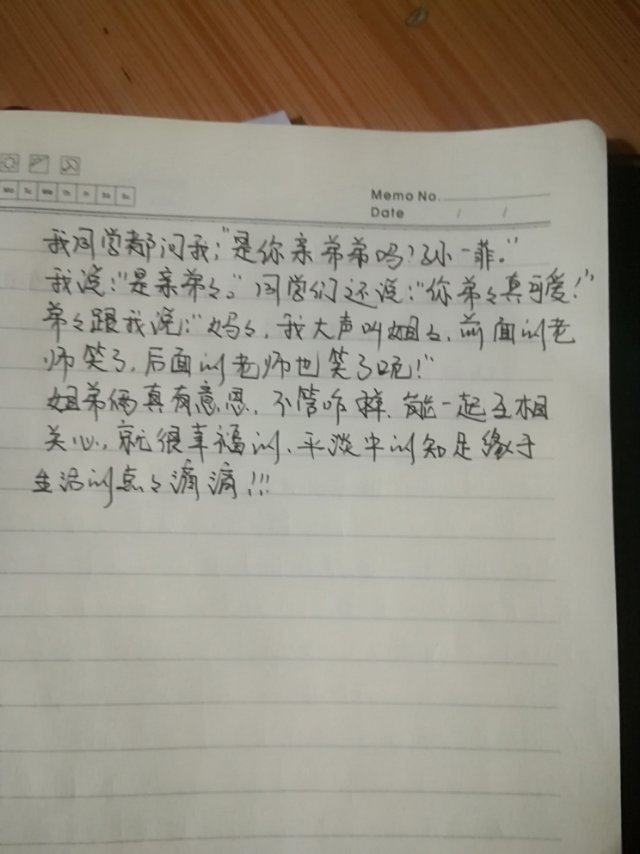 Mo Tu We Th Fr Sa Su
Memo No.
Date / /
我同学都问我:"是你亲弟弟吗?孙一菲。"
我说:"是亲弟々。"同学们还说:"你弟々真可爱!"
弟々跟我说:"妈々,我大声叫姐々,前面的老
师笑了,后面的老师也笑了呢!"
姐弟俩真有意思,不管咋样,能一起互相
关心,就很幸福的,平淡中的知足缘于
生活的点々滴滴!!!